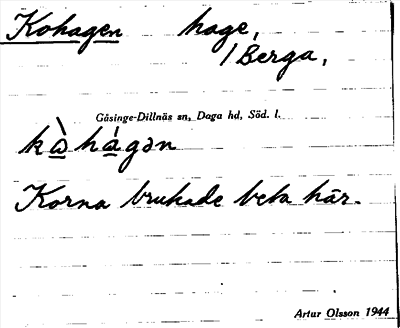 Kohagen hage,
/ Berga,
Gåsinge-Dillnäs sn, Daga hd, Söd. l.
kὼhágən
Korna brukade beta här.
Artur Olsson 1944